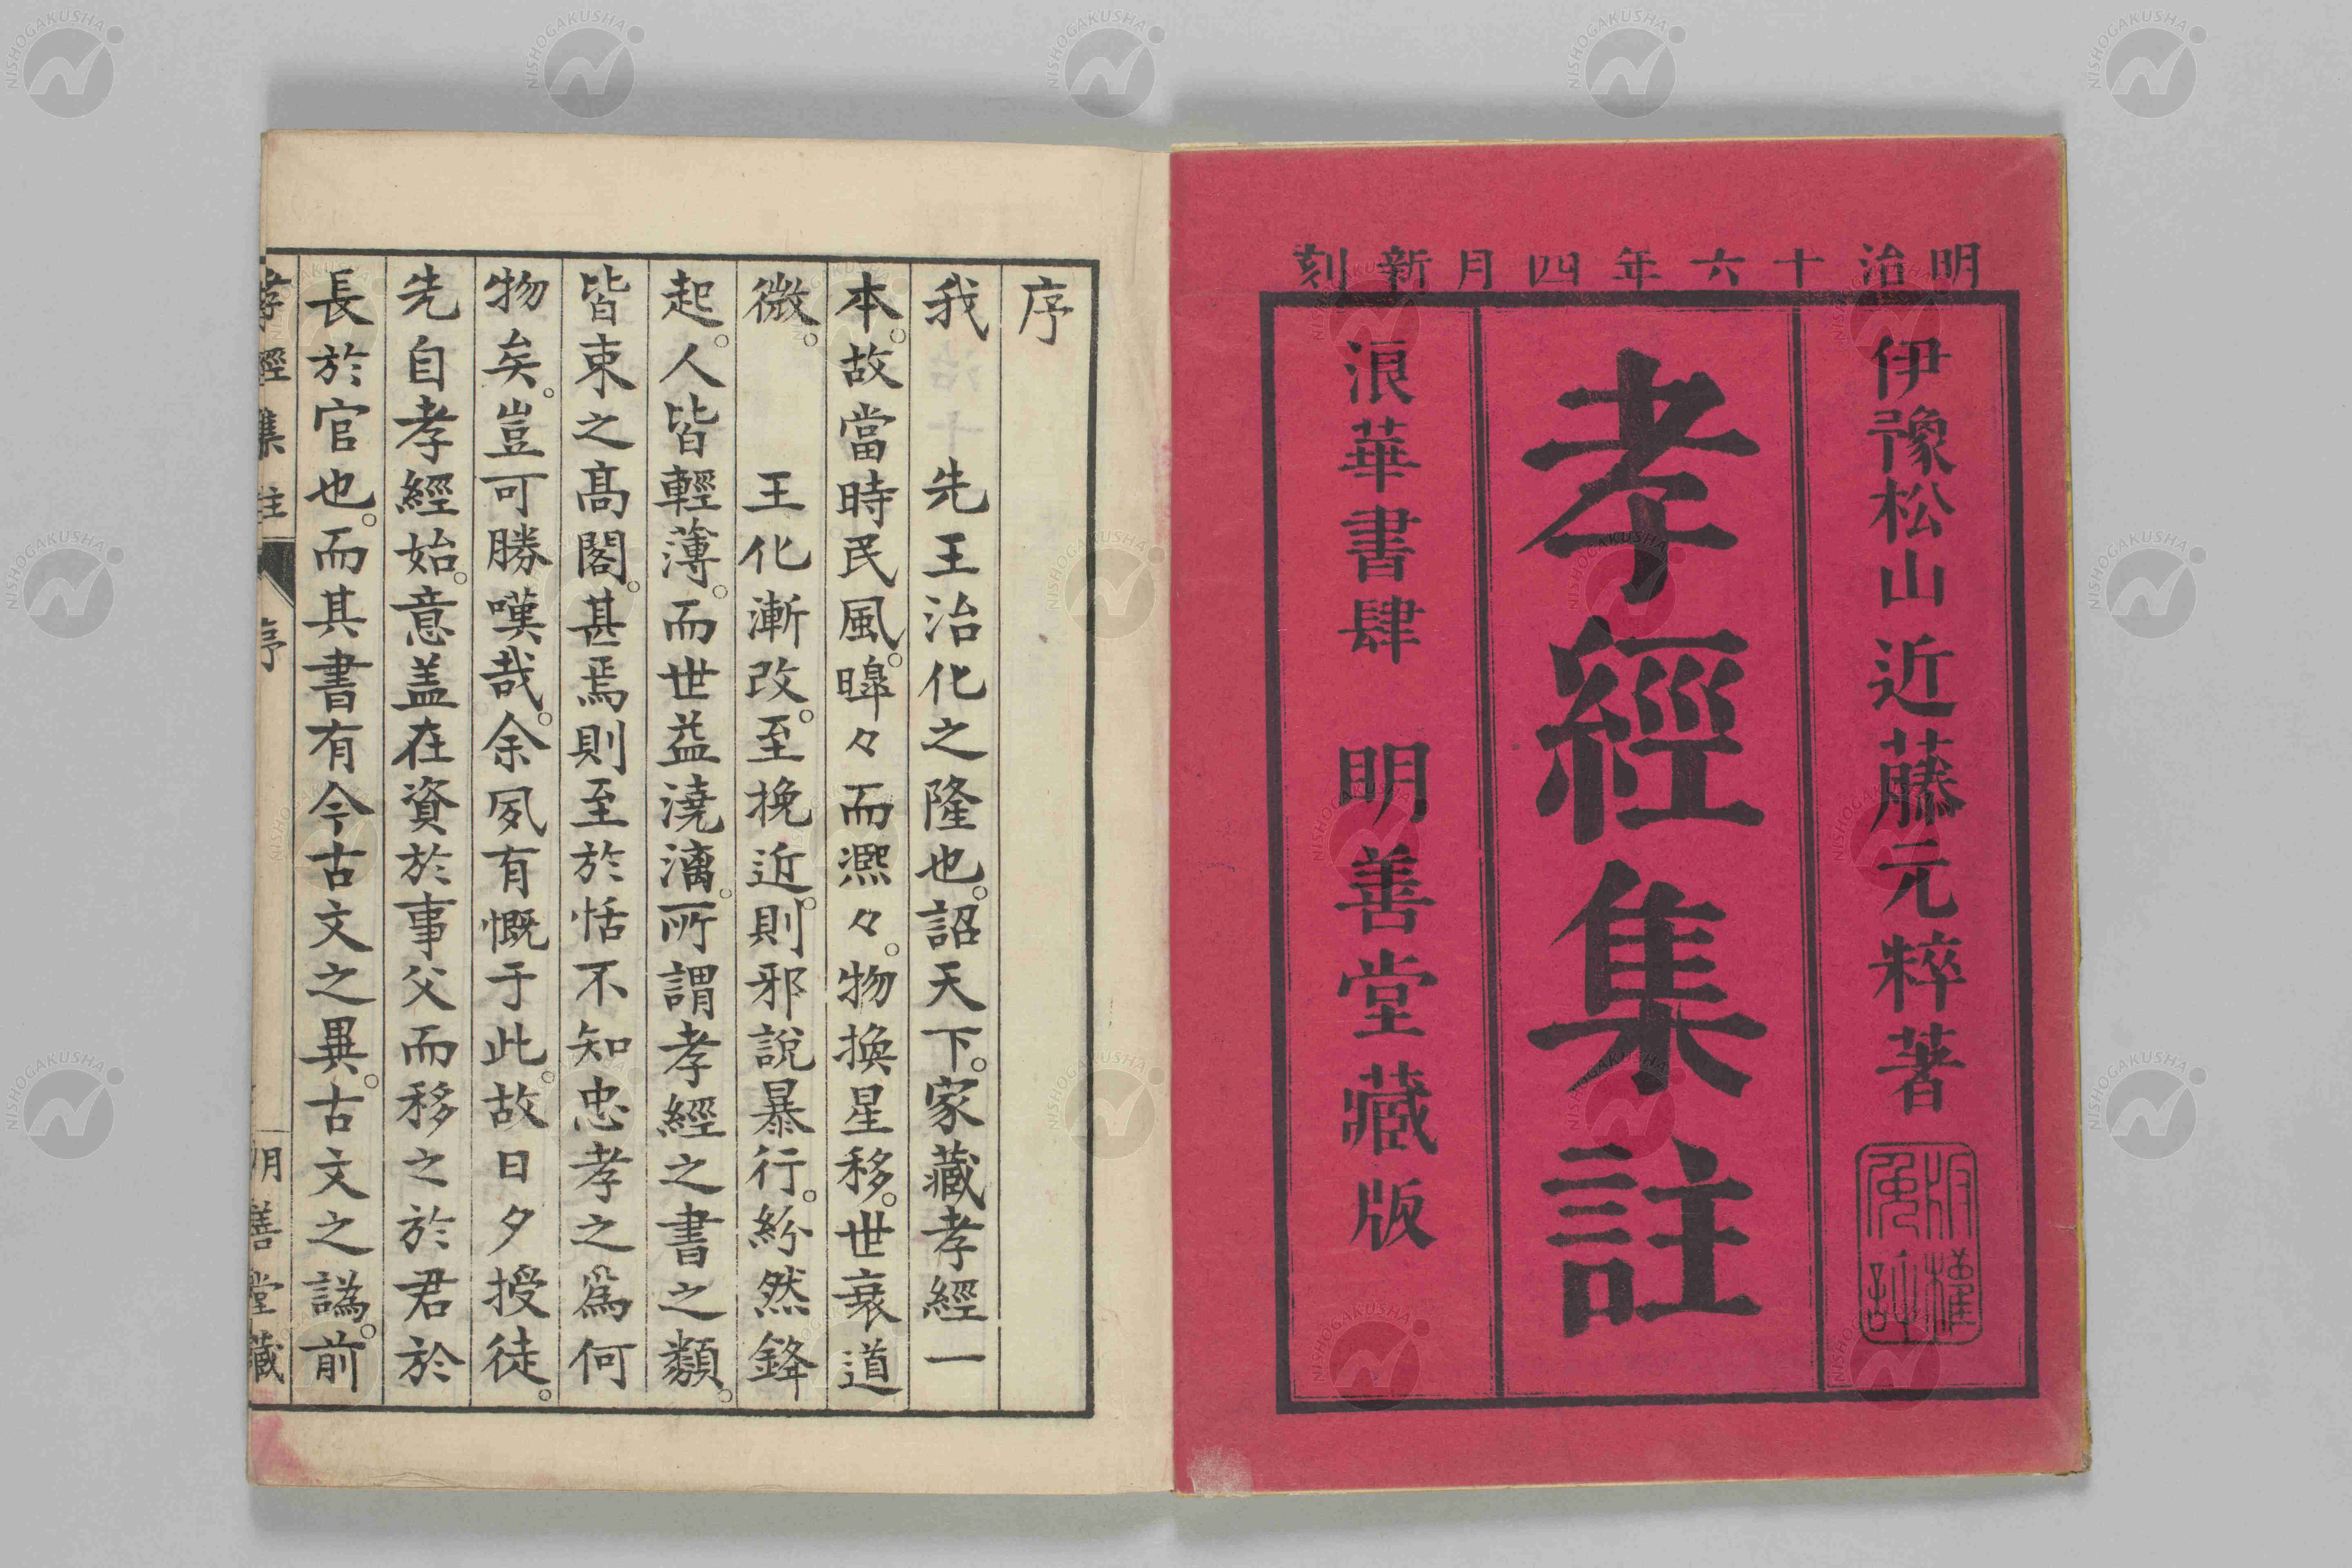 明治十六年四月新刻
伊豫松山 近藤元粹著
版權免許
孝經集註
浪華書肆 明善堂藏版
序
我 先王治化之隆也。詔天下。家藏孝經一
本。故當時民風。皥々而凞々。物換星移。世衰道
微。 王化漸改。至挽近。則邪說暴行。紛然鋒
起。人皆輕薄。而世益澆漓。所謂孝經之書之類。
皆束之高閣。甚焉則至於恬不知忠孝之爲何
物矣。豈可勝嘆哉。余夙有慨于此。故日夕授徒。
先自孝經始。意盖在資於事父而移之於君於
長於官也。而其書有今古文之異。古文之譌。前
孝經集註 序 明善堂藏
NISHOGAKUSHA